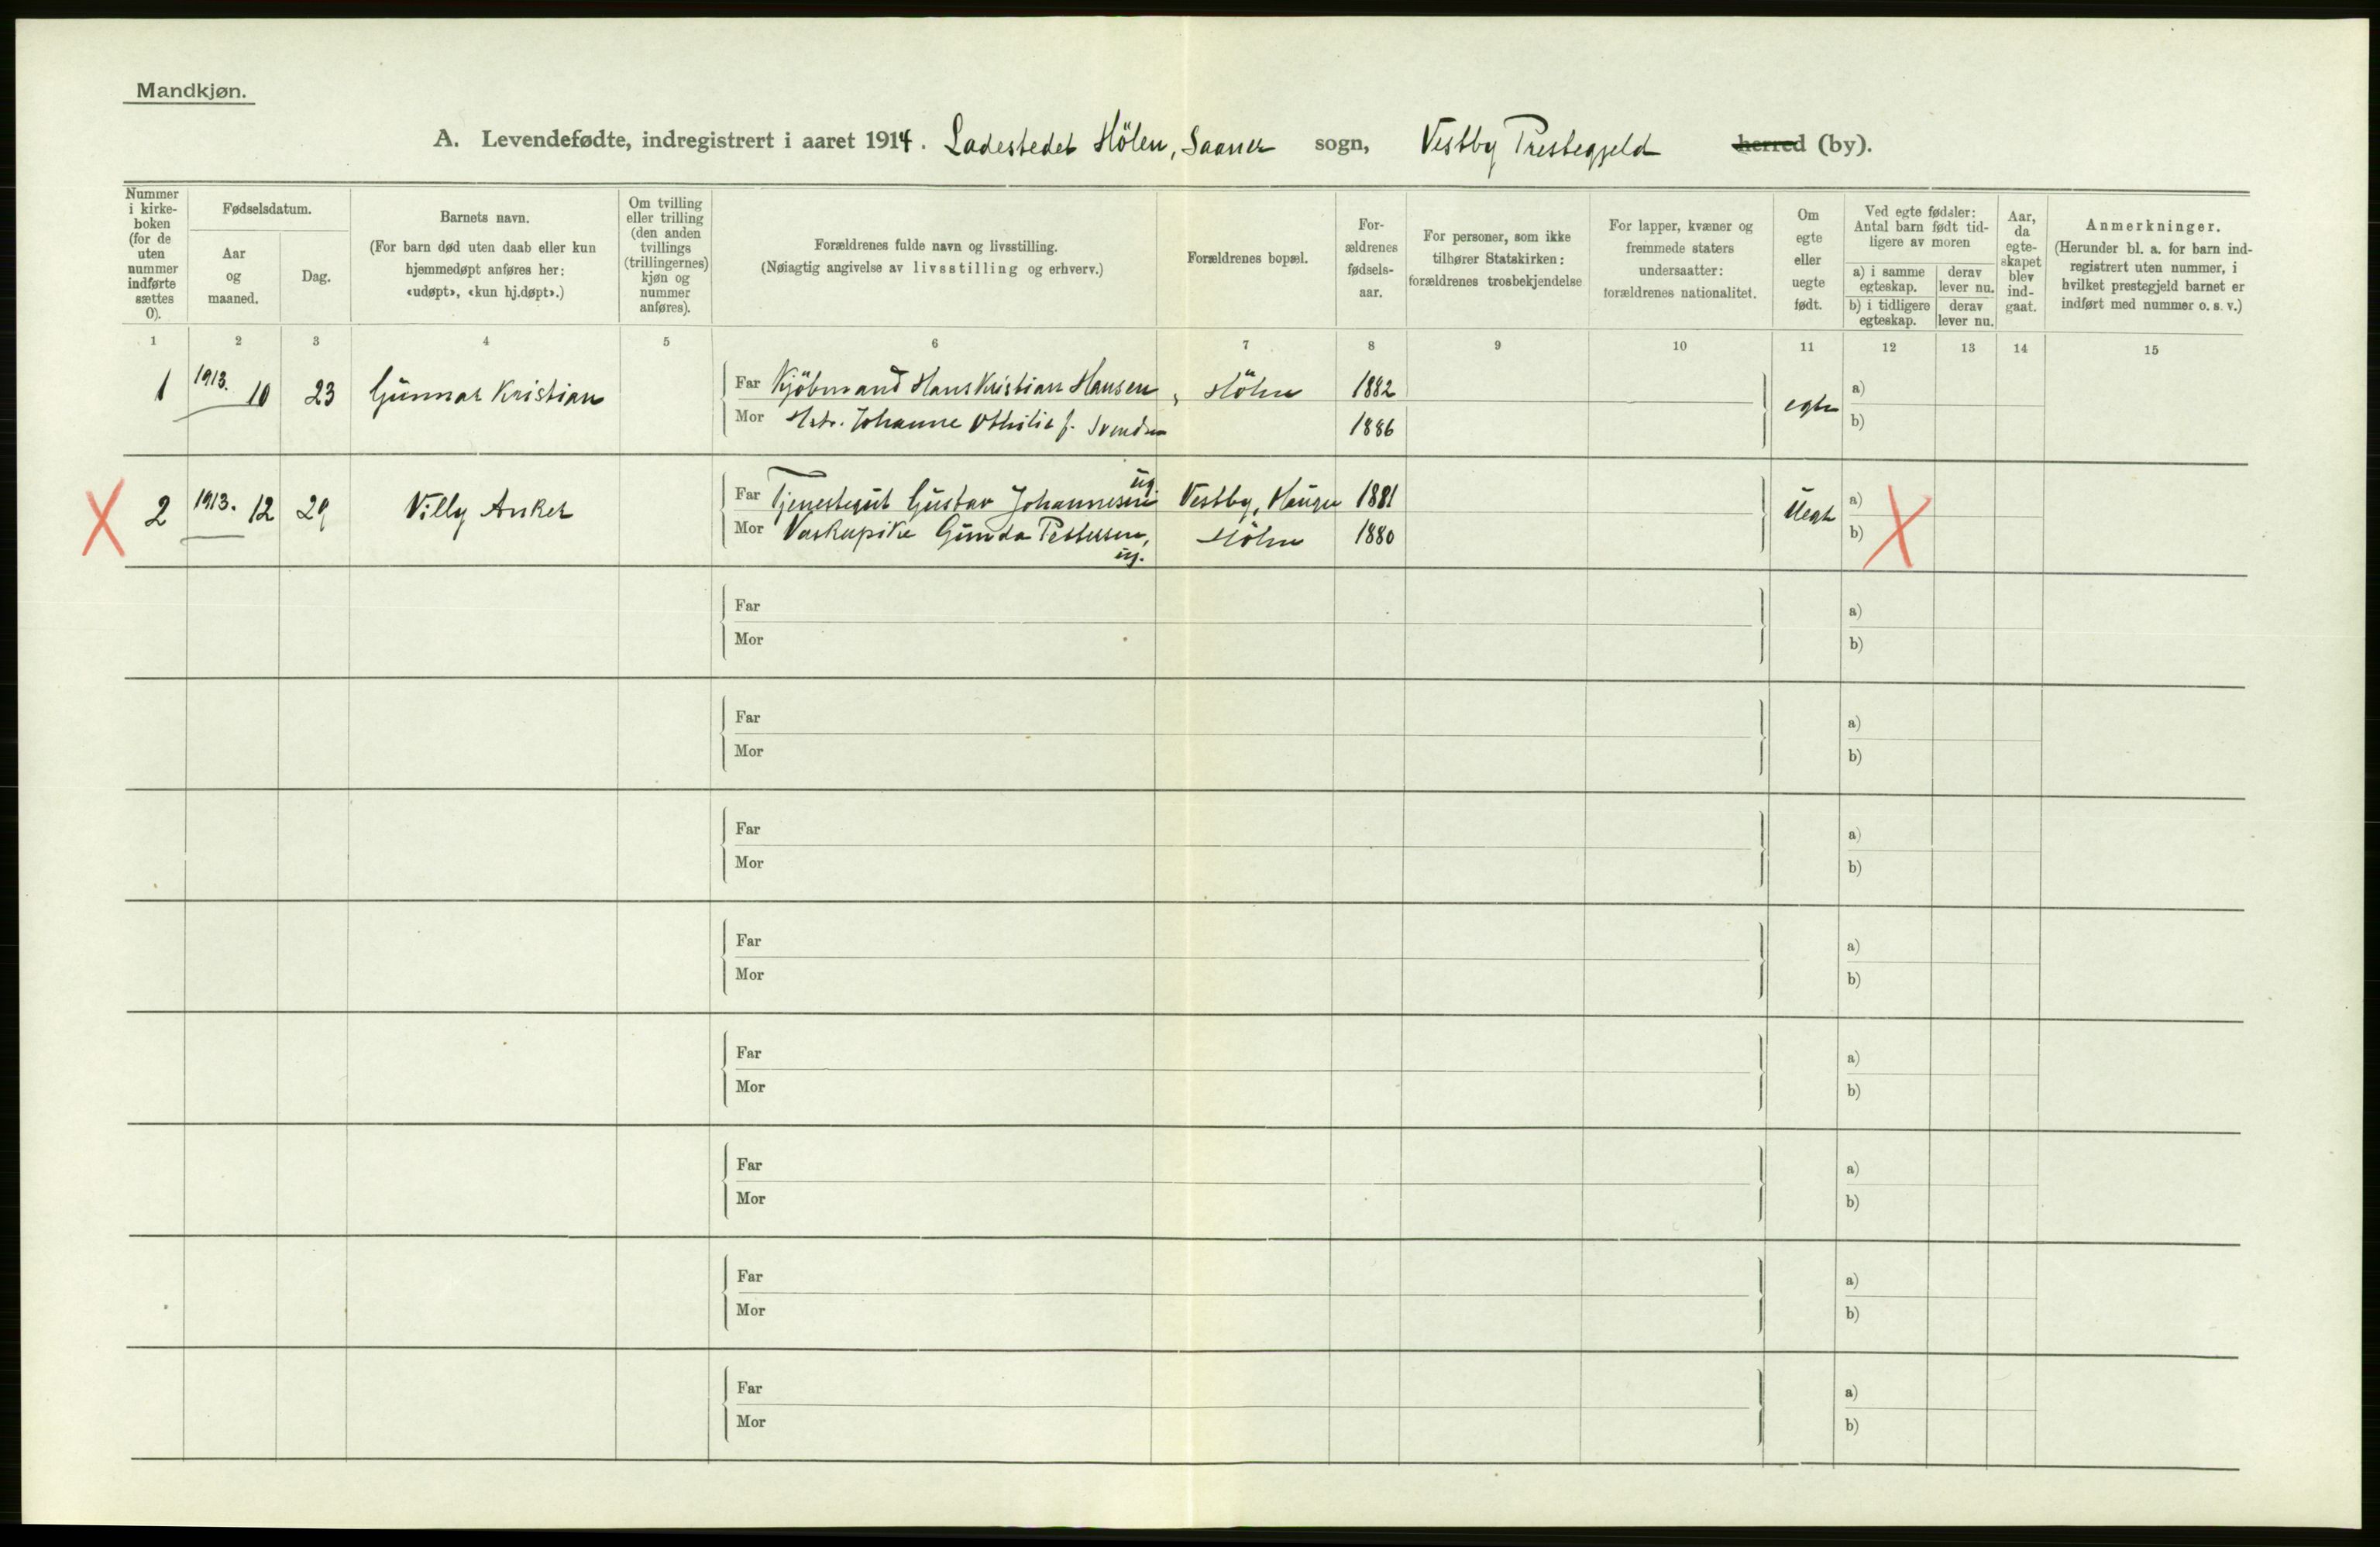 Mandkjøn.
A. Levendefødte, indregistrert i aaret 1914. Ladestedet Hölen, Saaner sogn, Vestby Prestegjeld herred (by).
Nummer i kirke-boken (for de uten nummer indførte sættes 0).
Fødselsdatum.
Aar og maaned.
Dag.
Barnets navn.
(For barn død uten daab eller kun hjemmedøpt anføres her: «udøpt», «kun hj.døpt».)
Om tvilling eller trilling (den anden tvillings (trillingernes) kjøn og nummer anføres).
Forældrenes fulde navn og livsstilling.
(Nøiagtig angivelse av livsstilling og erhverv.)
Forældrenes bopæl.
For-ældrenes fødsels-aar.
For personer, som ikke tilhører Statskirken: forældrenes trosbekjendelse
For lapper, kvæner og fremmede staters undersaatter: forældrenes nationalitet.
Om egte eller uegte født.
Ved egte fødsler: Antal barn født tid-ligere av moren
a) i samme egteskap.
derav lever nu.
b) i tidligere egteskap.
derav lever nu.
Aar, da egte-skapet blev ind-gaat.
Anmerkninger.
(Herunder bl. a. for barn ind-registrert uten nummer, i hvilket prestegjeld barnet er indført med nummer o. s. v.)
1 2 3 4 5 6 7 8 9 10 11 12 13 14 15
1 1913. 10 23 Gunnar Kristian Far Kjöbmand Hans Kristian Hansen, Hölen 1882 egte a)
Mor Hstr. Johanne Othilie f. Svendsen 1886 b)
2 1913. 12 29 Villy Anker Far Tjenestegut Gustav Johannesen ug. Vestby, Haugen 1881 Uegte a)
Mor Vaskepike Gunda Pettersen, ug. Hölen 1880 b)
Far a)
Mor b)
Far a)
Mor b)
Far a)
Mor b)
Far a)
Mor b)
Far a)
Mor b)
Far a)
Mor b)
Far a)
Mor b)
Far a)
Mor b)